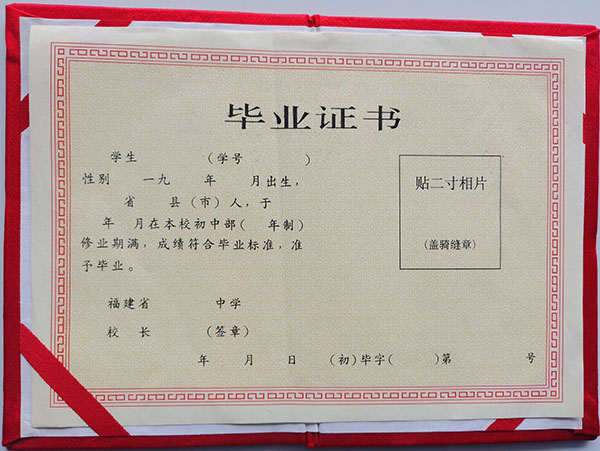 毕业证书
学生 (学号 )
性别 一九 年 月出生，
省 县(市)人，于
年 月在本校初中部( 年制)
修业期满，成绩符合毕业标准，准
予毕业。
贴二寸相片
(盖骑缝章)
福建省 中学
校 长 (签章)
年 月 日 (初)毕字( )第 号